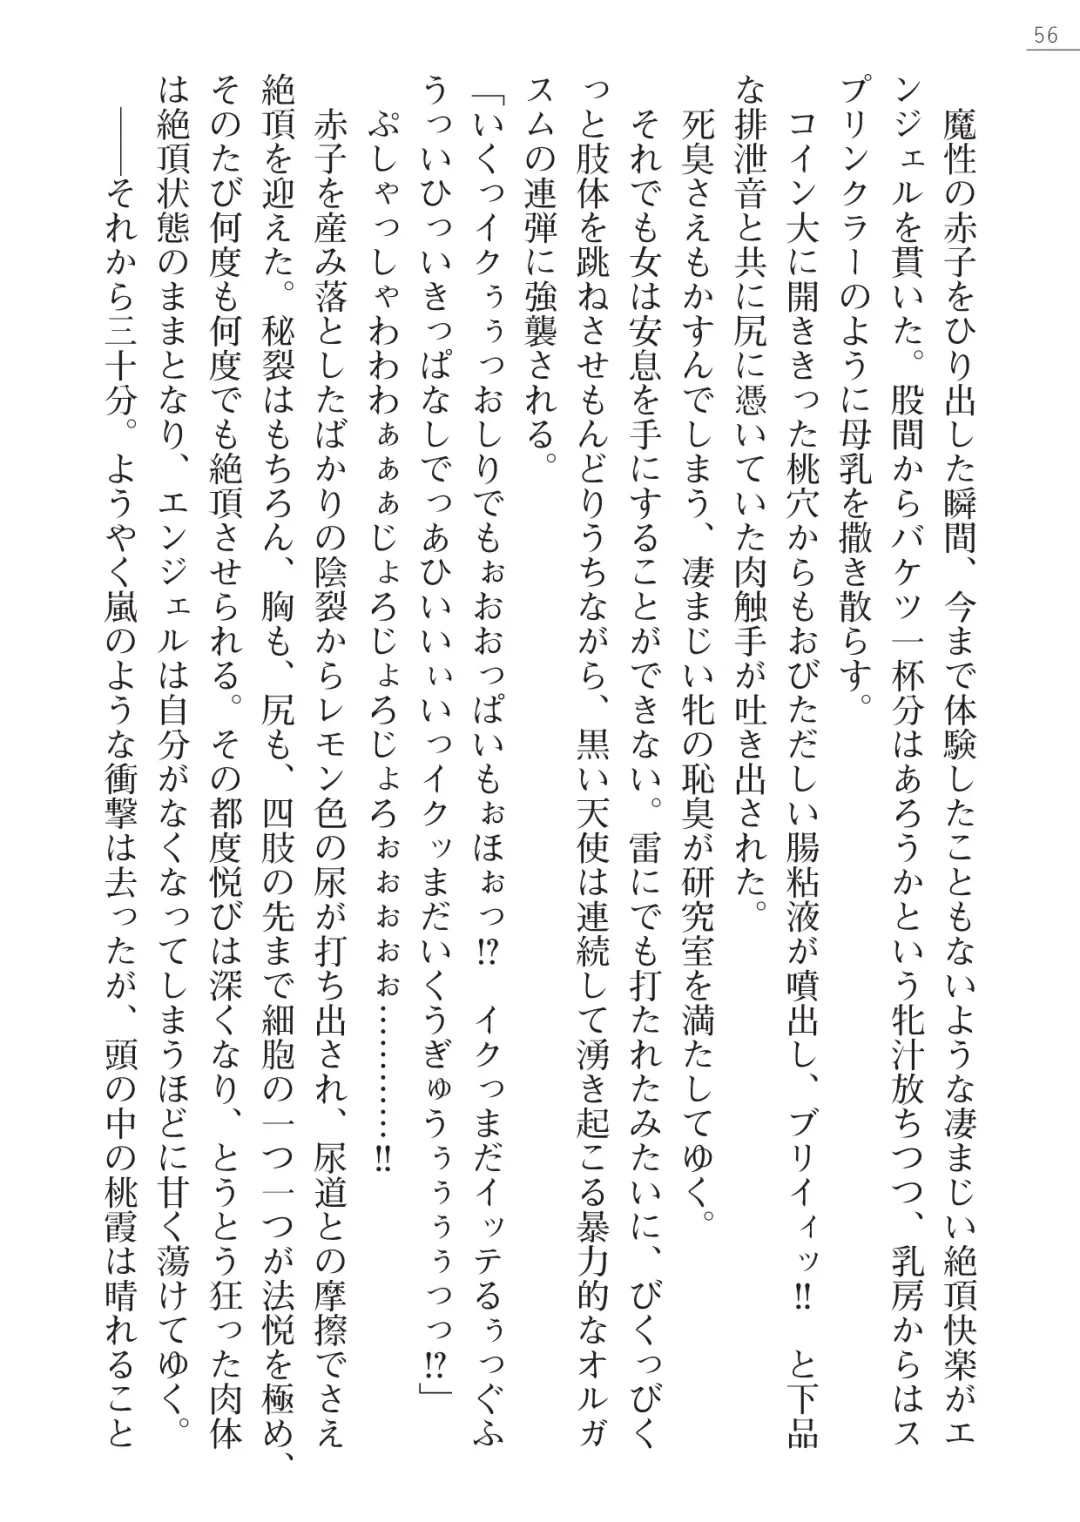 56
魔性の赤子をひり出した瞬間、今まで体験したこともないような凄まじい絶頂快楽がエ
ンジェルを貫いた。股間からバケツ一杯分はあろうかという牝汁放ちつつ、乳房からはス
プリンクラーのように母乳を撒き散らす。
コイン大に開ききった桃穴からもおびただしい腸粘液が噴出し、ブリイィッ!!　と下品
な排泄音と共に尻に憑いていた肉触手が吐き出された。
死臭さえもかすんでしまう、凄まじい牝の恥臭が研究室を満たしてゆく。
それでも女は安息を手にすることができない。雷にでも打たれたみたいに、びくっびく
っと肢体を跳ねさせもんどりうちながら、黒い天使は連続して湧き起こる暴力的なオルガ
スムの連弾に強襲される。
「いくっイクぅぅっおしりでもぉおおっぱいもぉほぉっ!?　イクっまだイッテるぅっぐふ
うっいひっいきっぱなしでっあひいいぃいっイクッまだいくうぎゅうぅぅぅぅっっ!?」
ぷしゃっしゃわわわぁぁぁじょろじょろじょろぉぉぉぉぉ…………!!
赤子を産み落としたばかりの陰裂からレモン色の尿が打ち出され、尿道との摩擦でさえ
絶頂を迎えた。秘裂はもちろん、胸も、尻も、四肢の先まで細胞の一つ一つが法悦を極め、
そのたび何度も何度でも絶頂させられる。その都度悦びは深くなり、とうとう狂った肉体
は絶頂状態のままとなり、エンジェルは自分がなくなってしまうほどに甘く蕩けてゆく。
――それから三十分。ようやく嵐のような衝撃は去ったが、頭の中の桃霞は晴れること